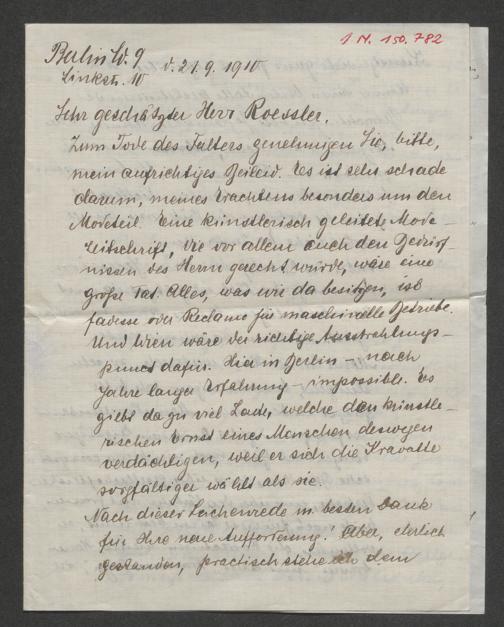 1 N. 150.782
Berlin W. 9
Linkstr. 10 d. 21.9.1910
Sehr geschätzter Herr Roessler,
Zum Tode des Falters genehmigen Sie, bitte,
mein aufrichtiges Beileid. Es ist sehr schade
darum, meines Erachtens besonders um den
Modeteil. Eine künstlerisch geleitete Mode-
zeitschrift, die vor allem auch den Bedürf-
nissen des Herrn gerecht würde, wäre eine
große Tat. Alles, was wir da besitzen, ist
fadesse oder Reclame für maschinelle Betriebe.
Und Wien wäre der richtige Ausstrahlungs-
punct dafür. Hier in Berlin – nach
Jahre langer Erfahrung – impossible. Es
giebt da zu viel Laute, welche den künstle-
rischen Ernst eines Menschen deswegen
verdächtigen, weil er sich die Kravatte
sorgfältiger wählt als sie.
Nach dieser Leichenrede in besten Dank
für Ihre neue Aufforderung! Aber, ehrlich
gestanden, practisch stehe ich dem